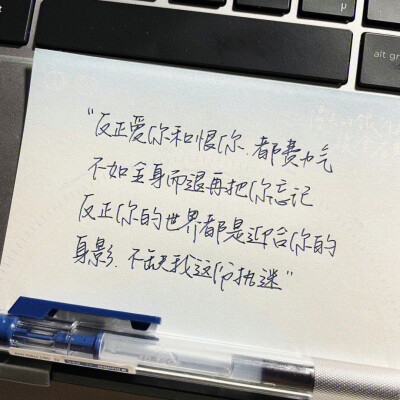 alt gr
“反正爱你和恨你.都费力气
不如全身而退再把你忘记
反正你的世界都是迎合你的
身影.不缺我这份执迷”